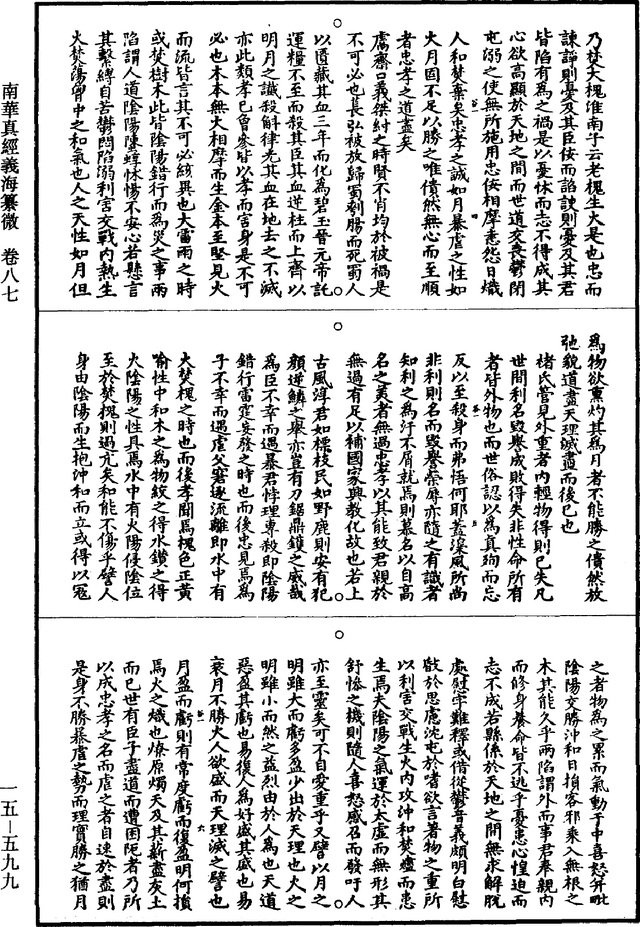 南華真經義海纂微 卷八七
一五—五九九
乃焚大槐淮南子云老槐生火是也忠而
諫諍則憂及其臣佞而諂諛則憂及其君
皆陷有為之禍是以憂怵而志不得成其
心欲高顯於天地之間而世道交喪鬱閉
屯溺之使無所施用忠佞相摩悉怨日熾
人和焚棄矣忠孝之誠如月暴虐之性如
火月固不足以勝之唯僓然無心而至順
者忠孝之道盡矣
鬳齋口義桀紂之時賢不肖均於被禍是
不可必也萇弘被放歸蜀刳腸而死蜀人
以匱藏其血三年而化為碧玉晉元帝託
運糧不至而殺其臣其血逆柱而上齊以
明月之讖殺斛律光其血在地去之不滅
亦此類孝己曾參皆以孝而言身是不可
必也木本無火相摩而生金本至堅見火
而流皆言其不可必絯異也大雷雨之時
或焚樹木此皆陰陽錯行而為災之事兩
陷謂人道陰陽墜蜳怵惕不安心若懸言
其繫縛自苦鬱悶陷溺利害交戰內熱生
火焚蕩胷中之和氣也人之天性如月但
為物欲熏灼其為月者不能勝之僓然放
弛貌道盡天理滅盡而後已也
褚氏管見外重者內輕物得則己失凡
世間利名毀譽成敗得失非性命所有
者皆外物也而世俗認以為真殉而忘
反以至殺身而弗悟何耶蓋澆風所尚
非利則名而毀譽榮辱亦隨之有識者
知利之為汙不屑就焉則慕名以自高
名之美者無過忠孝以其能致君親於
無過有足以補國家興教化故也若上
古風淳君如標枝民如野鹿則安有犯
顏逆鱗之舉亦豈有刀鋸鼎鑊之威哉
為臣不幸而遇暴君悖理專殺即陰陽
錯行雷霆妄發之時也而後忠見焉為
子不幸而遇虐父窘逐流離即水中有
火焚槐之時也而後孝聞焉槐色正黃
喻性中和木之為物絞之得水鑽之得
火陰陽之性具焉水中有火陽侵陰位
至於焚槐則過亢矣和能不傷乎譬人
身由陰陽而生抱沖和而立或得以寇
之者物為之累而氣動于中喜怒并毗
陰陽交勝沖和日損客邪乘入無根之
木其能久乎兩陷謂外而事君奉親內
而修身養命皆不逃乎憂患心惶迫而
志不成若縣係於天地之間無求解脫
處慰睯難釋或借從鬱音義頗明白慰
啟於思慮沈屯於嗜欲言著物之重所
以利害交戰生火內攻沖和焚爐而患
生焉夫陰陽之氣運於太虛而無形其
舒慘之機則隨人喜怒感召而發吁人
亦至靈矣可不自愛重乎又譬以月之
明雖大而虧多盈少出於天理也火之
明雖小而然之益烈由於人為也天道
惡盈其虧也易復人為好盛其盛也易
衰月不勝火人欲盛而天理滅之譬也
月盈而虧則有常度虧而復盈明何損
焉火之熾也燎原燭天及其薪盡灰土
而已世有臣子盡道而遭困阨者乃所
以成忠孝之名而虐之者自速於盡則
是身不勝暴虐之勢而理實勝之猶月